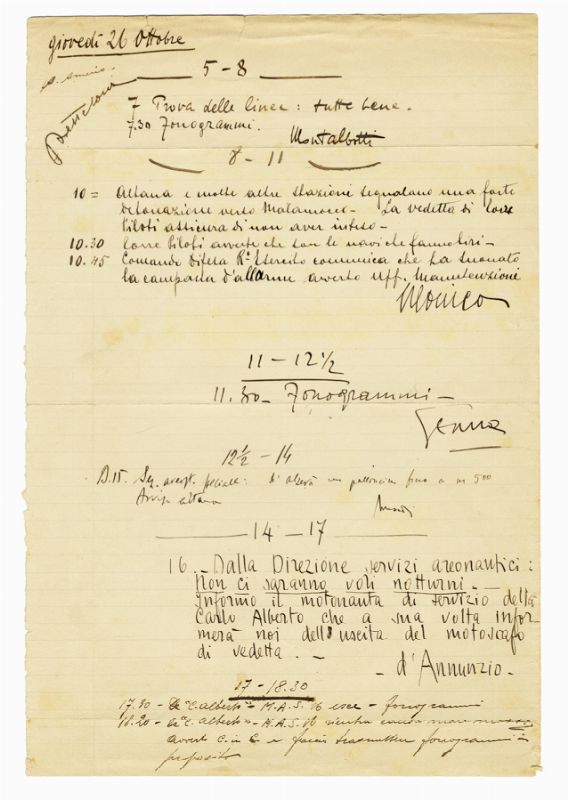 giovedì 26 Ottobre
5 - 8
7 Prova delle linee: tutte bene.
7.30 Fonogrammi.
Montalbotti
8 - 11
10 = Altana e molte altre stazioni segnalano una forte
detonazione verso Malamocco - La vedetta di torre
Piloti assicura di non aver inteso -
10.30 Torre Piloti avverte che son le navi che fanno tiri -
10.45 Comando Difesa R.º Esercito comunica che ha suonato
la campana d'allarme avverto Uff. Manutenzione
11 - 12 1/2
11.30 - Fonogrammi -
12 1/2 - 14
altana
14 - 17
16. - Dalla Direzione servizi areonautici:
Non ci saranno voli notturni. -
Informo il motonauta di servizio della
Carlo Alberto che a sua volta infor-
merà noi dell'uscita del motoscafo
di vedetta. -
d'Annunzio -
17 - 18.30
17.30 - C. Alberto - M.A.S. esce - fonogrammi
18.20 - C. Alberto - M.A.S. rientra
fonogrammi
proposito